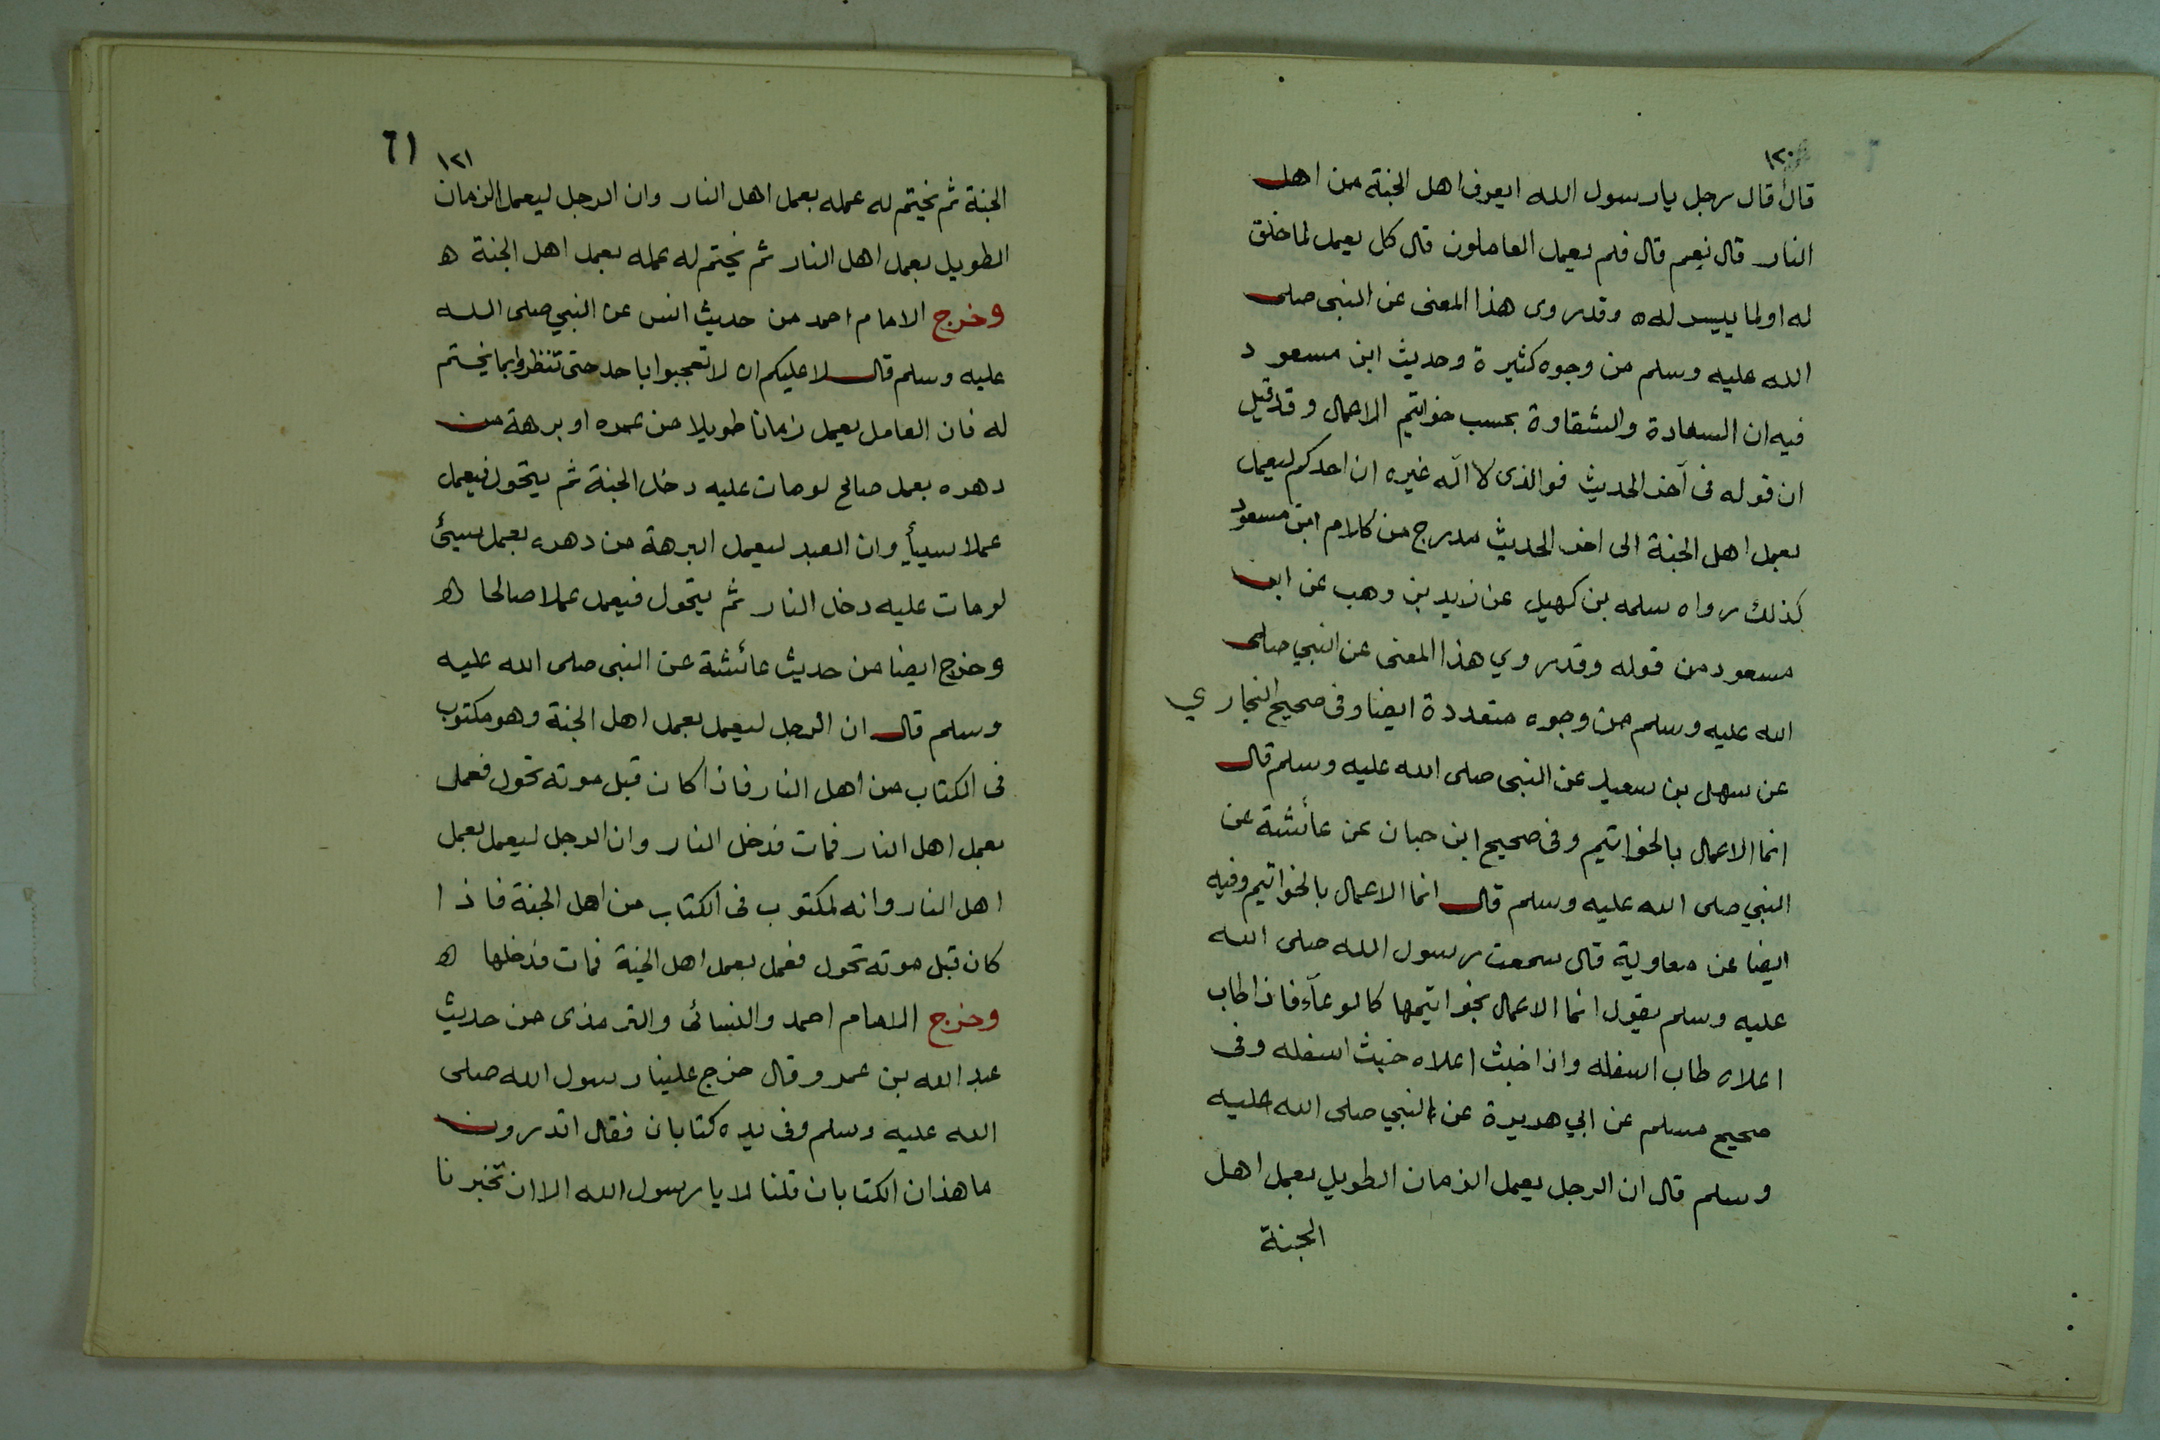 ١٢٠
قال قال رجل يا رسول الله ايعرف اهل الجنة من اهل
النار قال نعم قال فلم يعمل العاملون قال كل يعمل لما خلق
له او لما ييسر له ه وقد روى هذا المعنى عن النبى صلى
الله عليه وسلم من وجوه كثيرة وحديث ابن مسعود
فيه ان السعادة والشقاوة بحسب خواتيم الاعمال وقد قيل
ان قوله فى آخر الحديث فوالذى لا اله غيره ان احدكم ليعمل
بعمل اهل الجنة الى اخر الحديث مدرج من كلام ابن مسعود
كذلك رواه سلمه بن كهيل عن زيد بن وهب عن ابن
مسعود من قوله وقد روي هذا المعنى عن النبي صلى
الله عليه وسلم من وجوه متعددة ايضا وفى صحيح البخاري
عن سهل بن سعيد عن النبى صلى الله عليه وسلم قال
انما الاعمال بالخواتيم وفى صحيح ابن حبان عن عائشة عن
النبي صلى الله عليه وسلم قال انما الاعمال بالخواتيم وفيه
ايضا عن معاوية قال سمعت رسول الله صلى الله
عليه وسلم يقول انما الاعمال بخواتيمها كالوعآء فاذا طاب
اعلاه طاب اسفله واذا خبث اعلاه خبث اسفله وفى
صحيح مسلم عن ابي هريرة عن النبي صلى الله عليه
وسلم قال ان الرجل يعمل الزمان الطويل بعمل اهل
الجنة
١٢١
61
الجنة ثم يختم له عمله بعمل اهل النار وان الرجل ليعمل الزمان
الطويل بعمل اهل النار ثم يختم له عمله بعمل اهل الجنة ه
وخرج الامام احمد من حديث انس عن النبي صلى الله
عليه وسلم قال لا عليكم ان لا تعجبوا باحد حتى تنظروا بما يختم
له فان العامل يعمل زمانا طويلا من عمره او برهة من
دهره بعمل صالح لو مات عليه دخل الجنة ثم يتحول فيعمل
عملا سيأ وان العبد ليعمل البرهة من دهره بعمل سيئ
لو مات عليه دخل النار ثم يتحول فيعمل عملا صالحا ه
وخرج ايضا من حديث عائشة عن النبى صلى الله عليه
وسلم قال ان الرجل ليعمل بعمل اهل الجنة وهو مكتوب
فى الكتاب من اهل النار فاذا كان قبل موته تحول فعمل
بعمل اهل النار فمات فدخل النار وان الرجل ليعمل بعمل
اهل النار وانه لمكتوب فى الكتاب من اهل الجنة فاذا
كان قبل موته تحول فعمل بعمل اهل الجنة فمات فدخلها ه
وخرج الامام احمد والنسائى والترمذى من حديث
عبد الله بن عمرو قال خرج علينا رسول الله صلى
الله عليه وسلم وفى يده كتابان فقال اتدرون
ما هذان الكتابان قلنا لا يا رسول الله الا ان تخبرنا